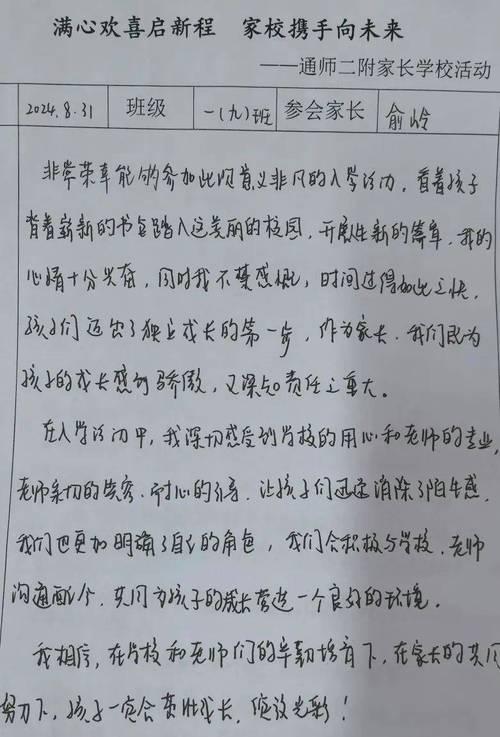 满心欢喜启新程 家校携手向未来
——通师二附家长学校活动
2024.8.31 班级 一(九)班 参会家长 俞岭
非常荣幸能够参加此项意义非凡的入学活动，看着孩子
背着崭新的书包踏入这美丽的校园，开启人生新的篇章，我的
心情十分兴奋，同时我不禁感慨，时间过得如此之快，
孩子们迈出了独立成长的第一步，作为家长，我们既为
孩子的成长感到骄傲，又深知责任之重大。
在入学活动中，我深切感受到学校的用心和老师的专业，
老师亲切的笑容、耐心的引导，让孩子们迅速消除了陌生感，
我们也更加明确了自己的角色，我们会积极与学校、老师
沟通配合，共同为孩子的成长营造一个良好的环境。
我相信，在学校和老师们的辛勤培育下，在家长的共同
努力下，孩子一定会茁壮成长，绽放光彩！